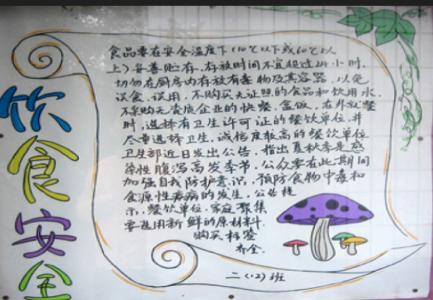 饮食安全
食品要在安全温度下(10℃以下或60℃以
上)妥善贮存,存放时间不宜超过24小时,
切勿在厨房内存放有毒物及其容器,以免
误食、误用,不购买无证照的食品和饮用水,
不采购无资质企业的快餐、盒饭。在外就餐
时,选择有卫生许可证的餐饮单位,并
尽量选择卫生、诚信度较高的餐饮单位
卫生部近日发出公告,指出夏秋季是感
染性腹泻高发季节,公众要在此期间
加强自我防护意识,预防食物中毒和
食源性疾病的发生。公告提
示,餐饮单位、家庭聚集
要选用新鲜的原材料
购买标签
齐全.
二(12)班